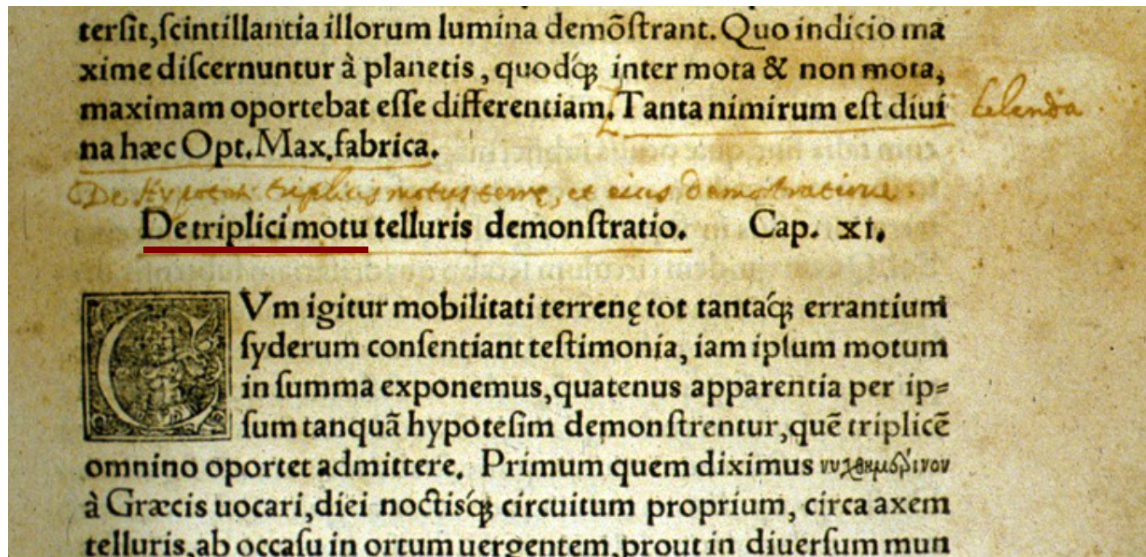 terſit, ſcintillantia illorum lumina demõſtrant. Quo indicio ma
xime diſcernuntur à planetis, quodq́; inter mota & non mota,
maximam oportebat eſſe differentiam. Tanta nimirum eſt diui delenda
na hæc Opt. Max. fabrica.
De Hypoth: triplicis motus terrę, et eius demõstratione.
De triplici motu telluris demonſtratio. Cap. XI.
CVm igitur mobilitati terrenę tot tantaq́; errantium
ſyderum conſentiant teſtimonia, iam ipſum motum
in ſumma exponemus, quatenus apparentia per ip⸗
ſum tanquã hypoteſim demonſtrentur, quẽ triplicẽ
omnino oportet admittere. Primum quem diximus νυχθημέρινον
à Græcis uocari, diei noctisq́; circuitum proprium, circa axem
telluris, ab occaſu in ortum uergentem, prout in diuerſum mun